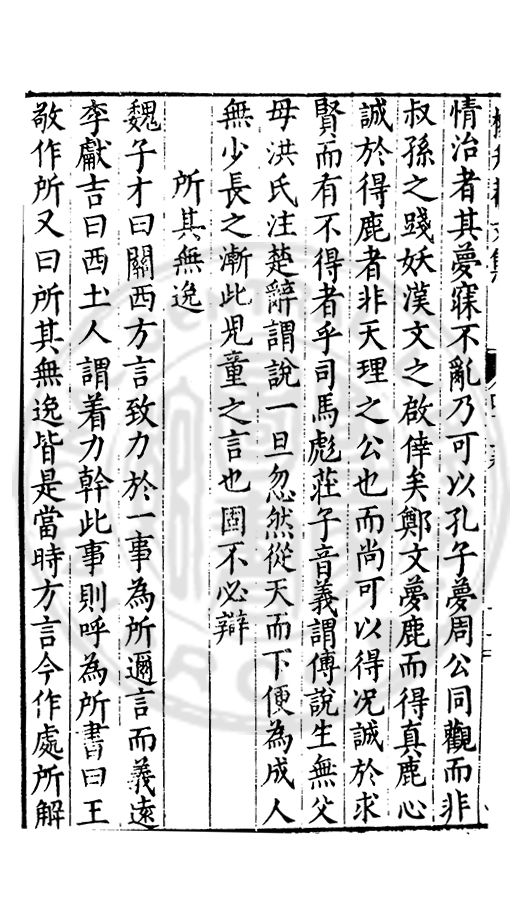 情治者其夢寐不亂乃可以孔子夢周公同觀而非
叔孫之踐妖漢文之啟倖矣鄭文夢鹿而得真鹿心
誠於得鹿者非天理之公也而尚可以得况誠於求
賢而有不得者乎司馬彪莊子音義謂傅說生無父
母洪氏注楚辭謂說一旦忽然從天而下便為成人
無少長之漸此兒童之言也固不必辯
所其無逸
魏子才曰關西方言致力於一事為所邇言而義遠
李獻吉曰西土人謂着力幹此事則呼為所書曰王
敬作所又曰所其無逸皆是當時方言今作處所解